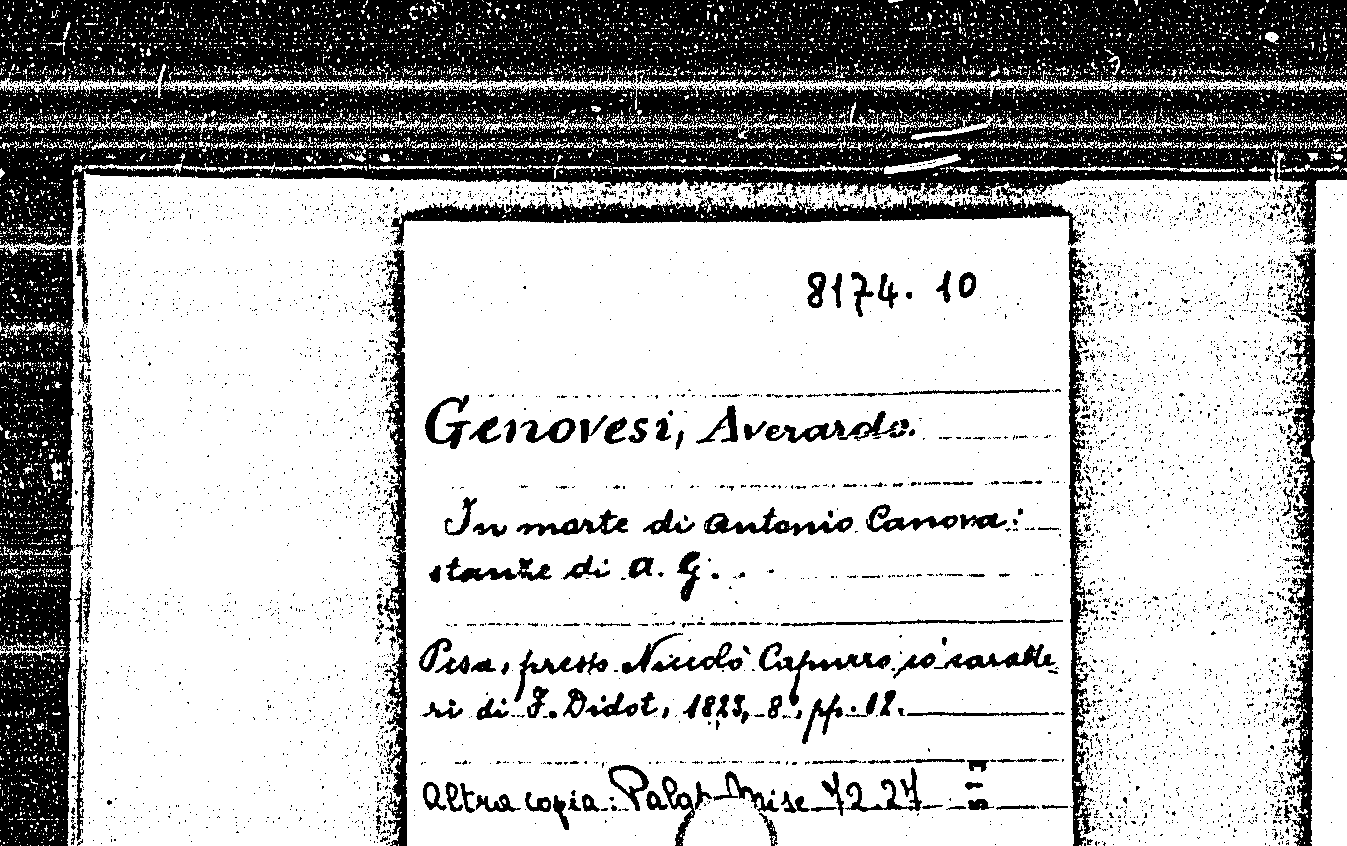 8174. 10
Genovesi, Averardo.
In morte di Antonio Canova:
stanze di A. G.
Pisa, presso Niccolò Capurro, co' caratte
ri di F. Didot, 1823, 8°, pp. 12.
Altra copia: Palat. Misc. 42.24